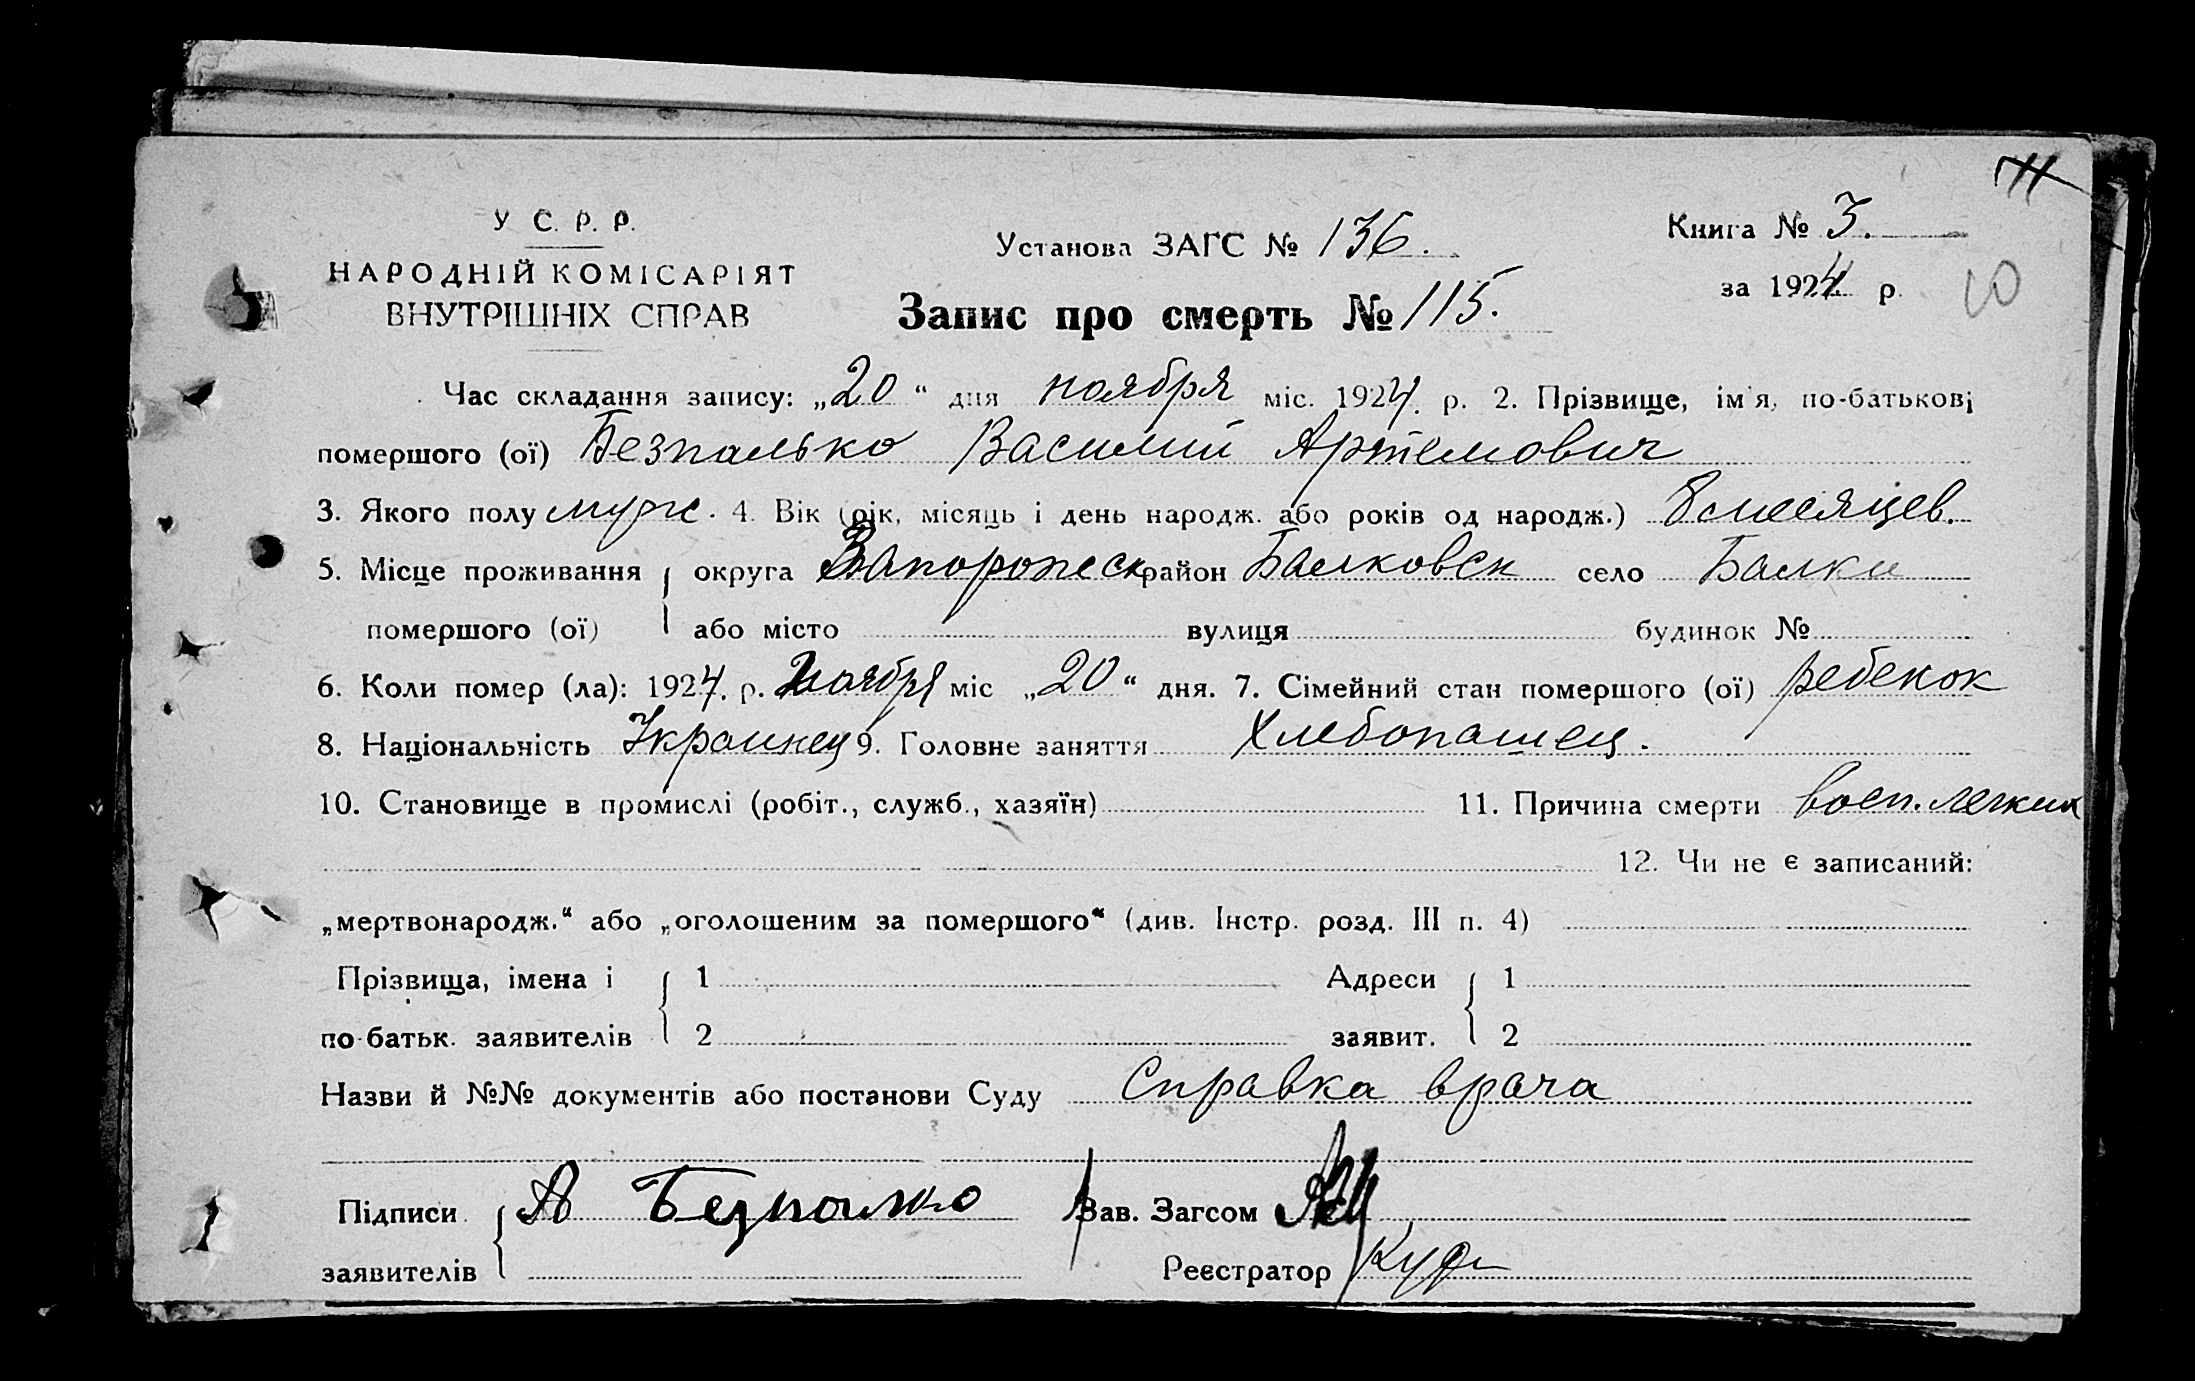 У С. Р. Р.
НАРОДНІЙ КОМІСАРІЯТ
ВНУТРІШНІХ СПРАВ
Установа ЗАГС № 136.
Книга № 3.
за 1924 р.
10
Запис про смерть № 115.
Час складання запису: „20“ дня ноября міс. 1924. р. 2. Прізвище, ім'я, по-батькові
помершого (ої) Безпалько Василий Артемович
3. Якого полу муж. 4. Вік (рік, місяць і день народж. або років од народж.) 8 месяцев.
5. Місце проживання округа Запорожск район Балковск село Балки
помершого (ої) або місто вулиця будинок №
6. Коли помер (ла): 1924. р. ноября міс „20“ дня. 7. Сімейний стан помершого (ої) ребенок
8. Національність Украинец 9. Головне заняття Хлебопашец.
10. Становище в промислі (робіт., служб., хазяїн) 11. Причина смерти восп. легких
12. Чи не є записаний:
„мертвонародж.“ або „оголошеним за помершого“ (див. Інстр. розд. III п. 4)
Прізвища, імена і 1 Адреси 1
по-батьк. заявителів 2 заявит. 2
Назви й №№ документів або постанови Суду Справка врача
Підписи А Безпалко Зав. Загсом
заявителів Реєстратор